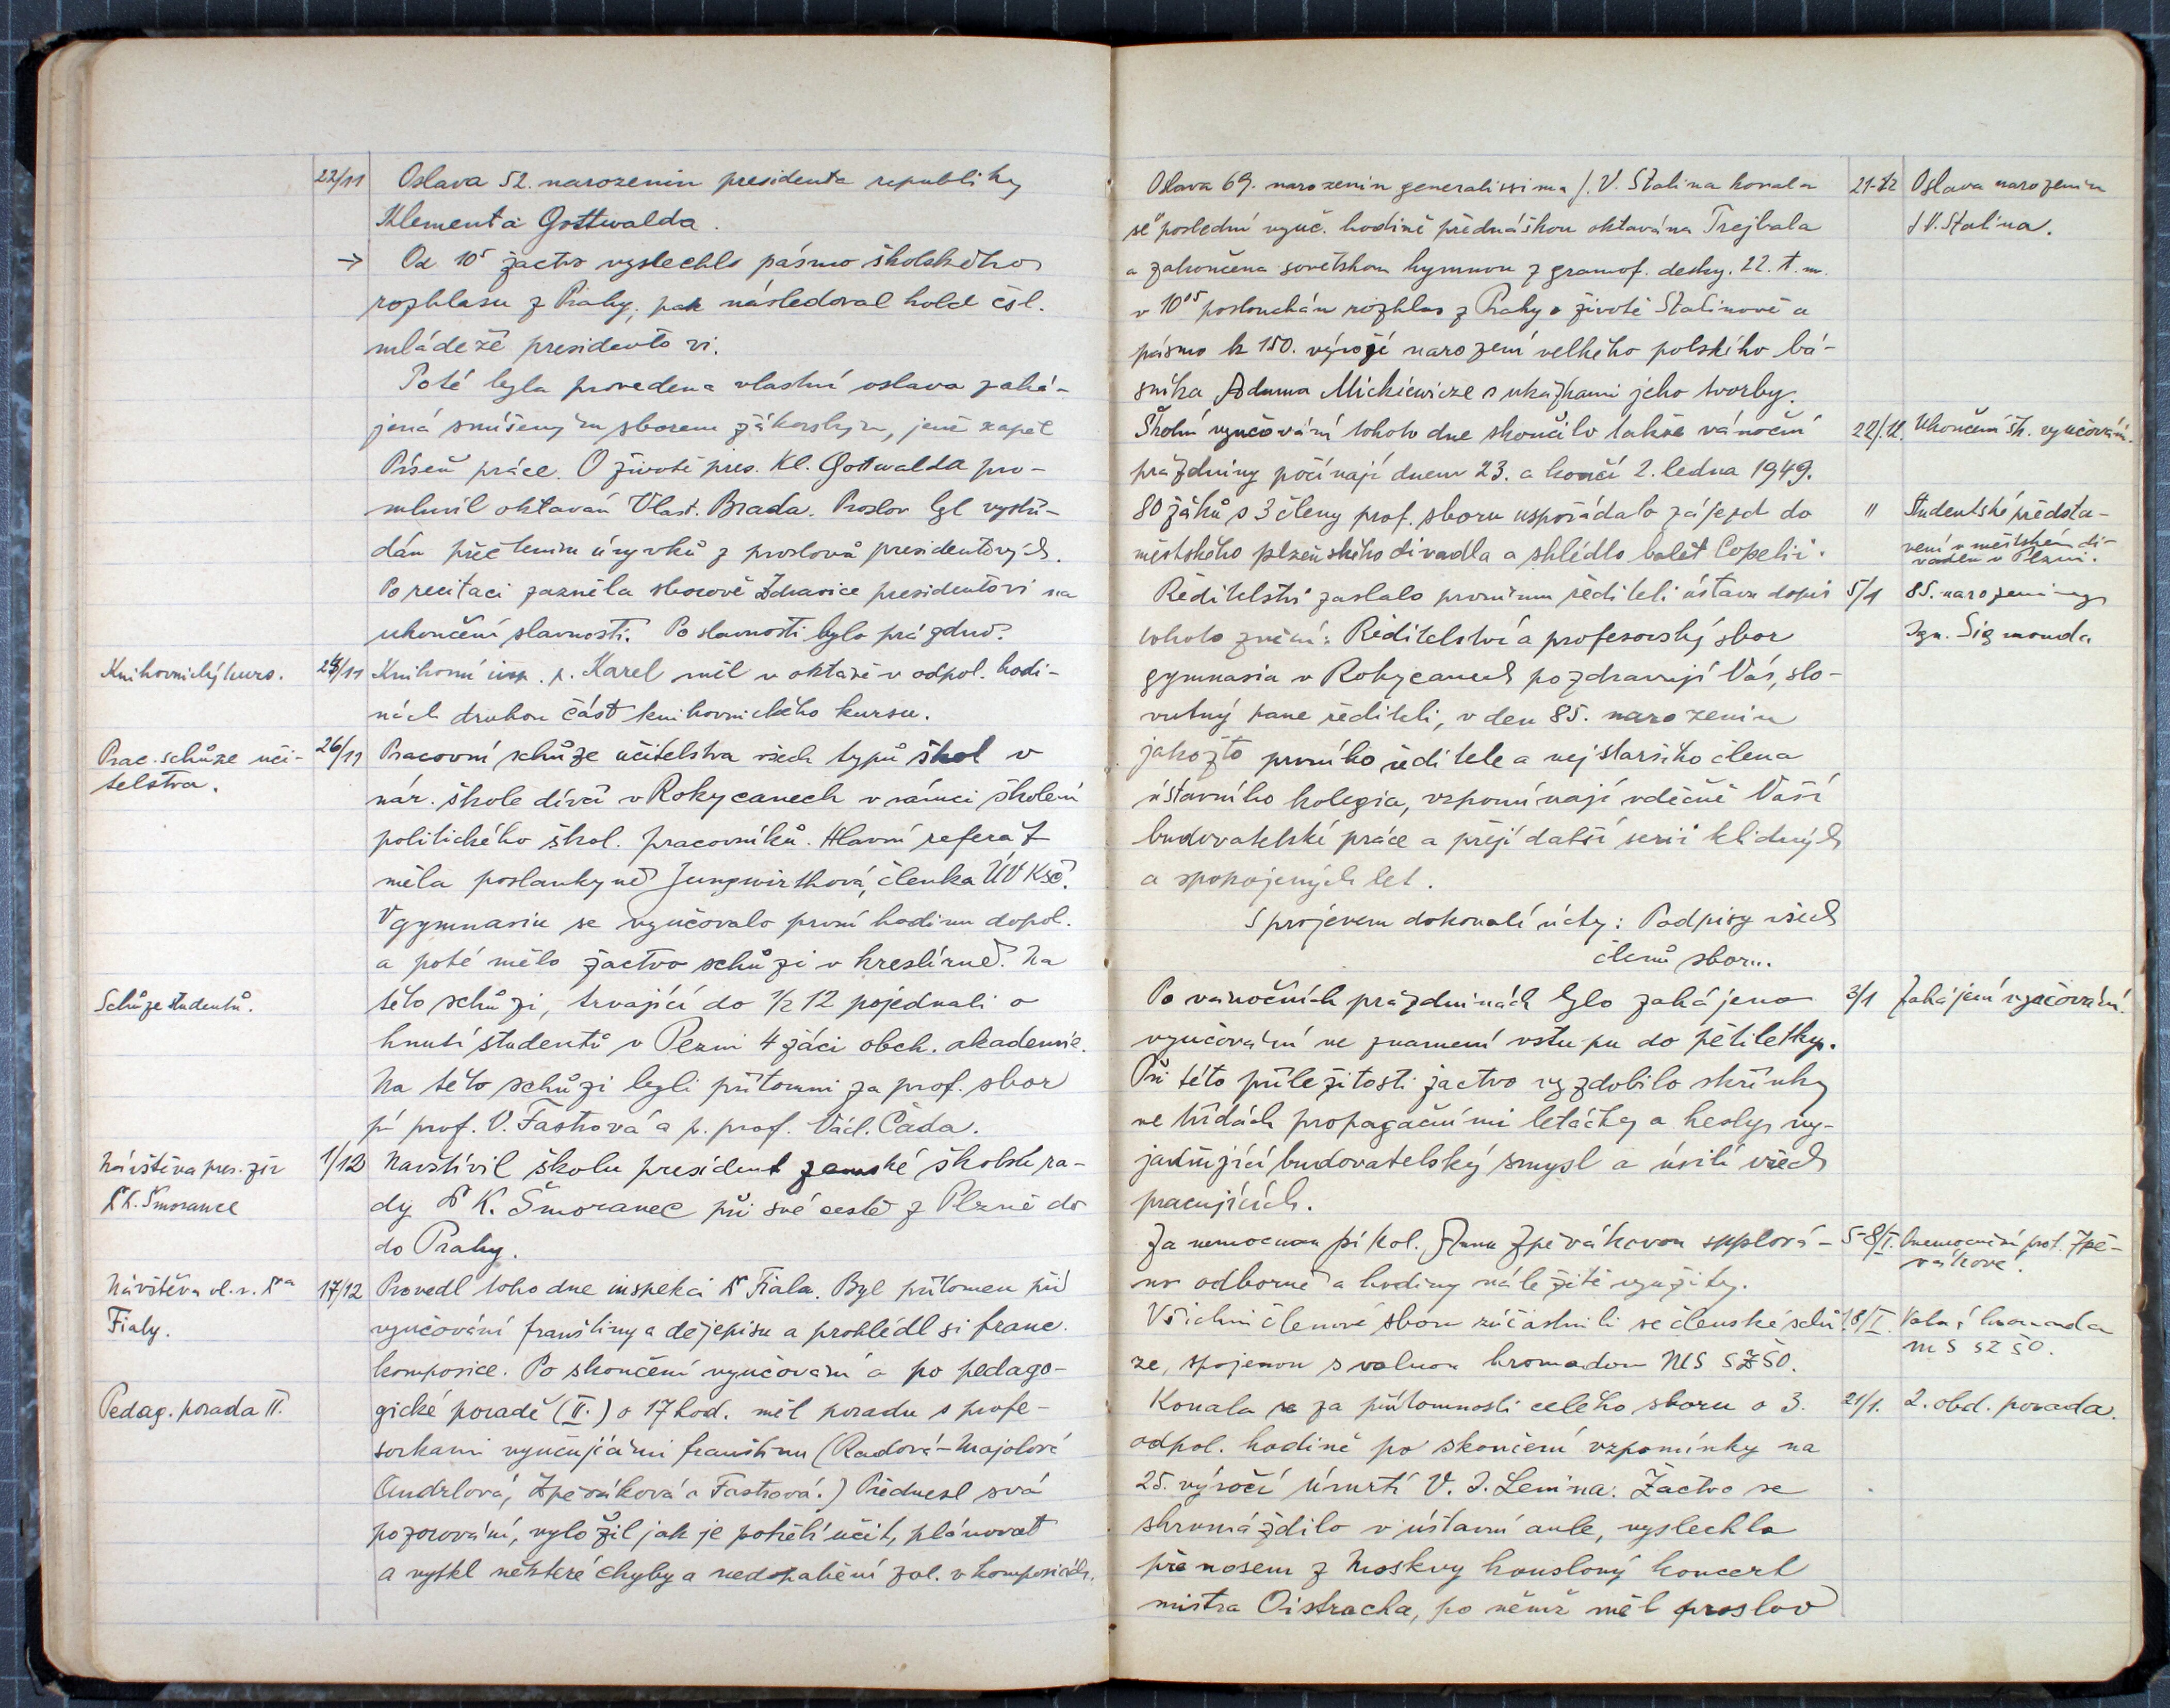 22/11 Oslava 52. narozenin presidenta republiky
Klementa Gottwalda.
→ Od 10⁵ žactvo vyslechlo pásmo školského
rozhlasu z Prahy, pak následoval hold čsl.
mládeže presidentovi.
Poté byla provedena vlastní oslava zahá-
jená smíšeným sborem žákovským, jenž zapěl
Píseň práce. O životě pres. Kl. Gottwalda pro-
mluvil oktaván Vlast. Brada. Proslov byl vystří-
dán přečtením úryvků z proslovů presidentových.
Po recitaci zazněla sborově Zdravice presidentovi na
ukončení slavnosti. Po slavnosti bylo prázdno.
Knihovnický kurs. 24/11 Knihovní insp. p. Karel měl v oktávě v odpol. hodi-
nách druhou část knihovnického kursu.
Prac. schůze uči- 26/11 Pracovní schůze učitelstva všech typů škol v
telstva. nár. škole dívčí v Rokycanech v rámci školení
politického škol. pracovníků. Hlavní referát
měla poslankyně Jungwirthová, členka ÚV KSČ.
V gymnasiu se vyučovalo první hodinu dopol.
a poté mělo žactvo schůzi v kreslírně. Na
Schůze studentů. této schůzi, trvající do ½ 12 pojednali o
hnutí studentů v Plzni 4 žáci obch. akademie.
Na této schůzi byli přítomni za prof. sbor
pí prof. V. Fastrová a p. prof. Václ. Čada.
Návštěva pres. zšr 1/12 Navštívil školu president zemské školské ra-
Dr K. Šmorance dy Dr K. Šmoranec při své cestě z Plzně do
do Prahy.
Návštěva vl. r. Dra 17/12 Provedl toho dne inspekci Dr Fiala. Byl přítomen při
Fialy. vyučování franštiny a dějepisu a prohlédl si franc.
komposice. Po skončení vyučování a po pedago-
Pedag. porada II. gické poradě (II.) o 17 hod. měl poradu s profe-
sorkami vyučujícími franštinu (Radová-Majolová
Andrlová, Zpěváková a Fastrová.) Přednesl svá
pozorování, vyložil jak je potřebí učit, plánovat
a vytkl některé chyby a nedopatření zal. v komposicích.
Oslava 69. narozenin generalissima J. V. Stalina konala 21-12 Oslava narozenin
se poslední vyuč. hodině přednáškou oktavána Trejbala J V. Stalina.
a zakončena sovětskou hymnou z gramof. desky. 22. t. m.
v 10⁰⁵ poslouchán rozhlas z Prahy o životě Stalinově a
pásmo k 150. výročí narození velkého polského bá-
sníka Adama Mickiewicze s ukázkami jeho tvorby.
Školní vyučování tohoto dne skončilo takže vánoční 22/12. Ukončení šk. vyučování.
prázdniny počínají dnem 23. a končí 2. ledna 1949.
80 žáků s 3 členy prof. sboru uspořádalo zájezd do " Studentské předsta-
městského plzeňského divadla a shlédlo balet Copelii. vení v městském di-
vadle v Plzni.
Ředitelství zaslalo prvnímu řediteli ústavu dopis 5/1 85. narozeniny
tohoto znění: Ředitelství a profesorský sbor Ign. Sigmonda
gymnasia v Rokycanech pozdravují Vás, slo-
vutný pane řediteli, v den 85. narozenin
jakožto prvního ředitele a nejstaršího člena
ústavního kolegia, vzpomínají vděčně Vaší
budovatelské práce a přejí další serii klidných
a spokojených let.
S projevem dokonalé úcty: Podpisy všech
členů sboru.
Po vánočních prázdninách bylo zahájeno 3/1 Zahájení vyučování.
vyučování ve znamení vstupu do pětiletky.
Při této příležitosti žactvo vyzdobilo skřínky
ve třídách propagačními letáčky a hesly, vy-
jadřující budovatelský smysl a úsilí všech
pracujících.
Za nemocnou pí kol. Annu Zpěvákovou supplová- 5-8/I. Onemocnění prof. Zpě-
no odborně a hodiny náležitě využity. vákové.
Všichni členové sboru zúčastnili se členské schů- 18/I. Valná hromada
ze, spojenou s valnou hromadou MS SZŠO. MS SZŠO.
Konala se za přítomnosti celého sboru o 3. 21/1. 2. obd. porada.
odpol. hodině po skončení vzpomínky na
25. výročí úmrtí V. I. Lenina. Žactvo se
shromáždilo v ústavní aule, vyslechlo
přenosem z Moskvy houslový koncert
mistra Oistracha, po němž měl proslov